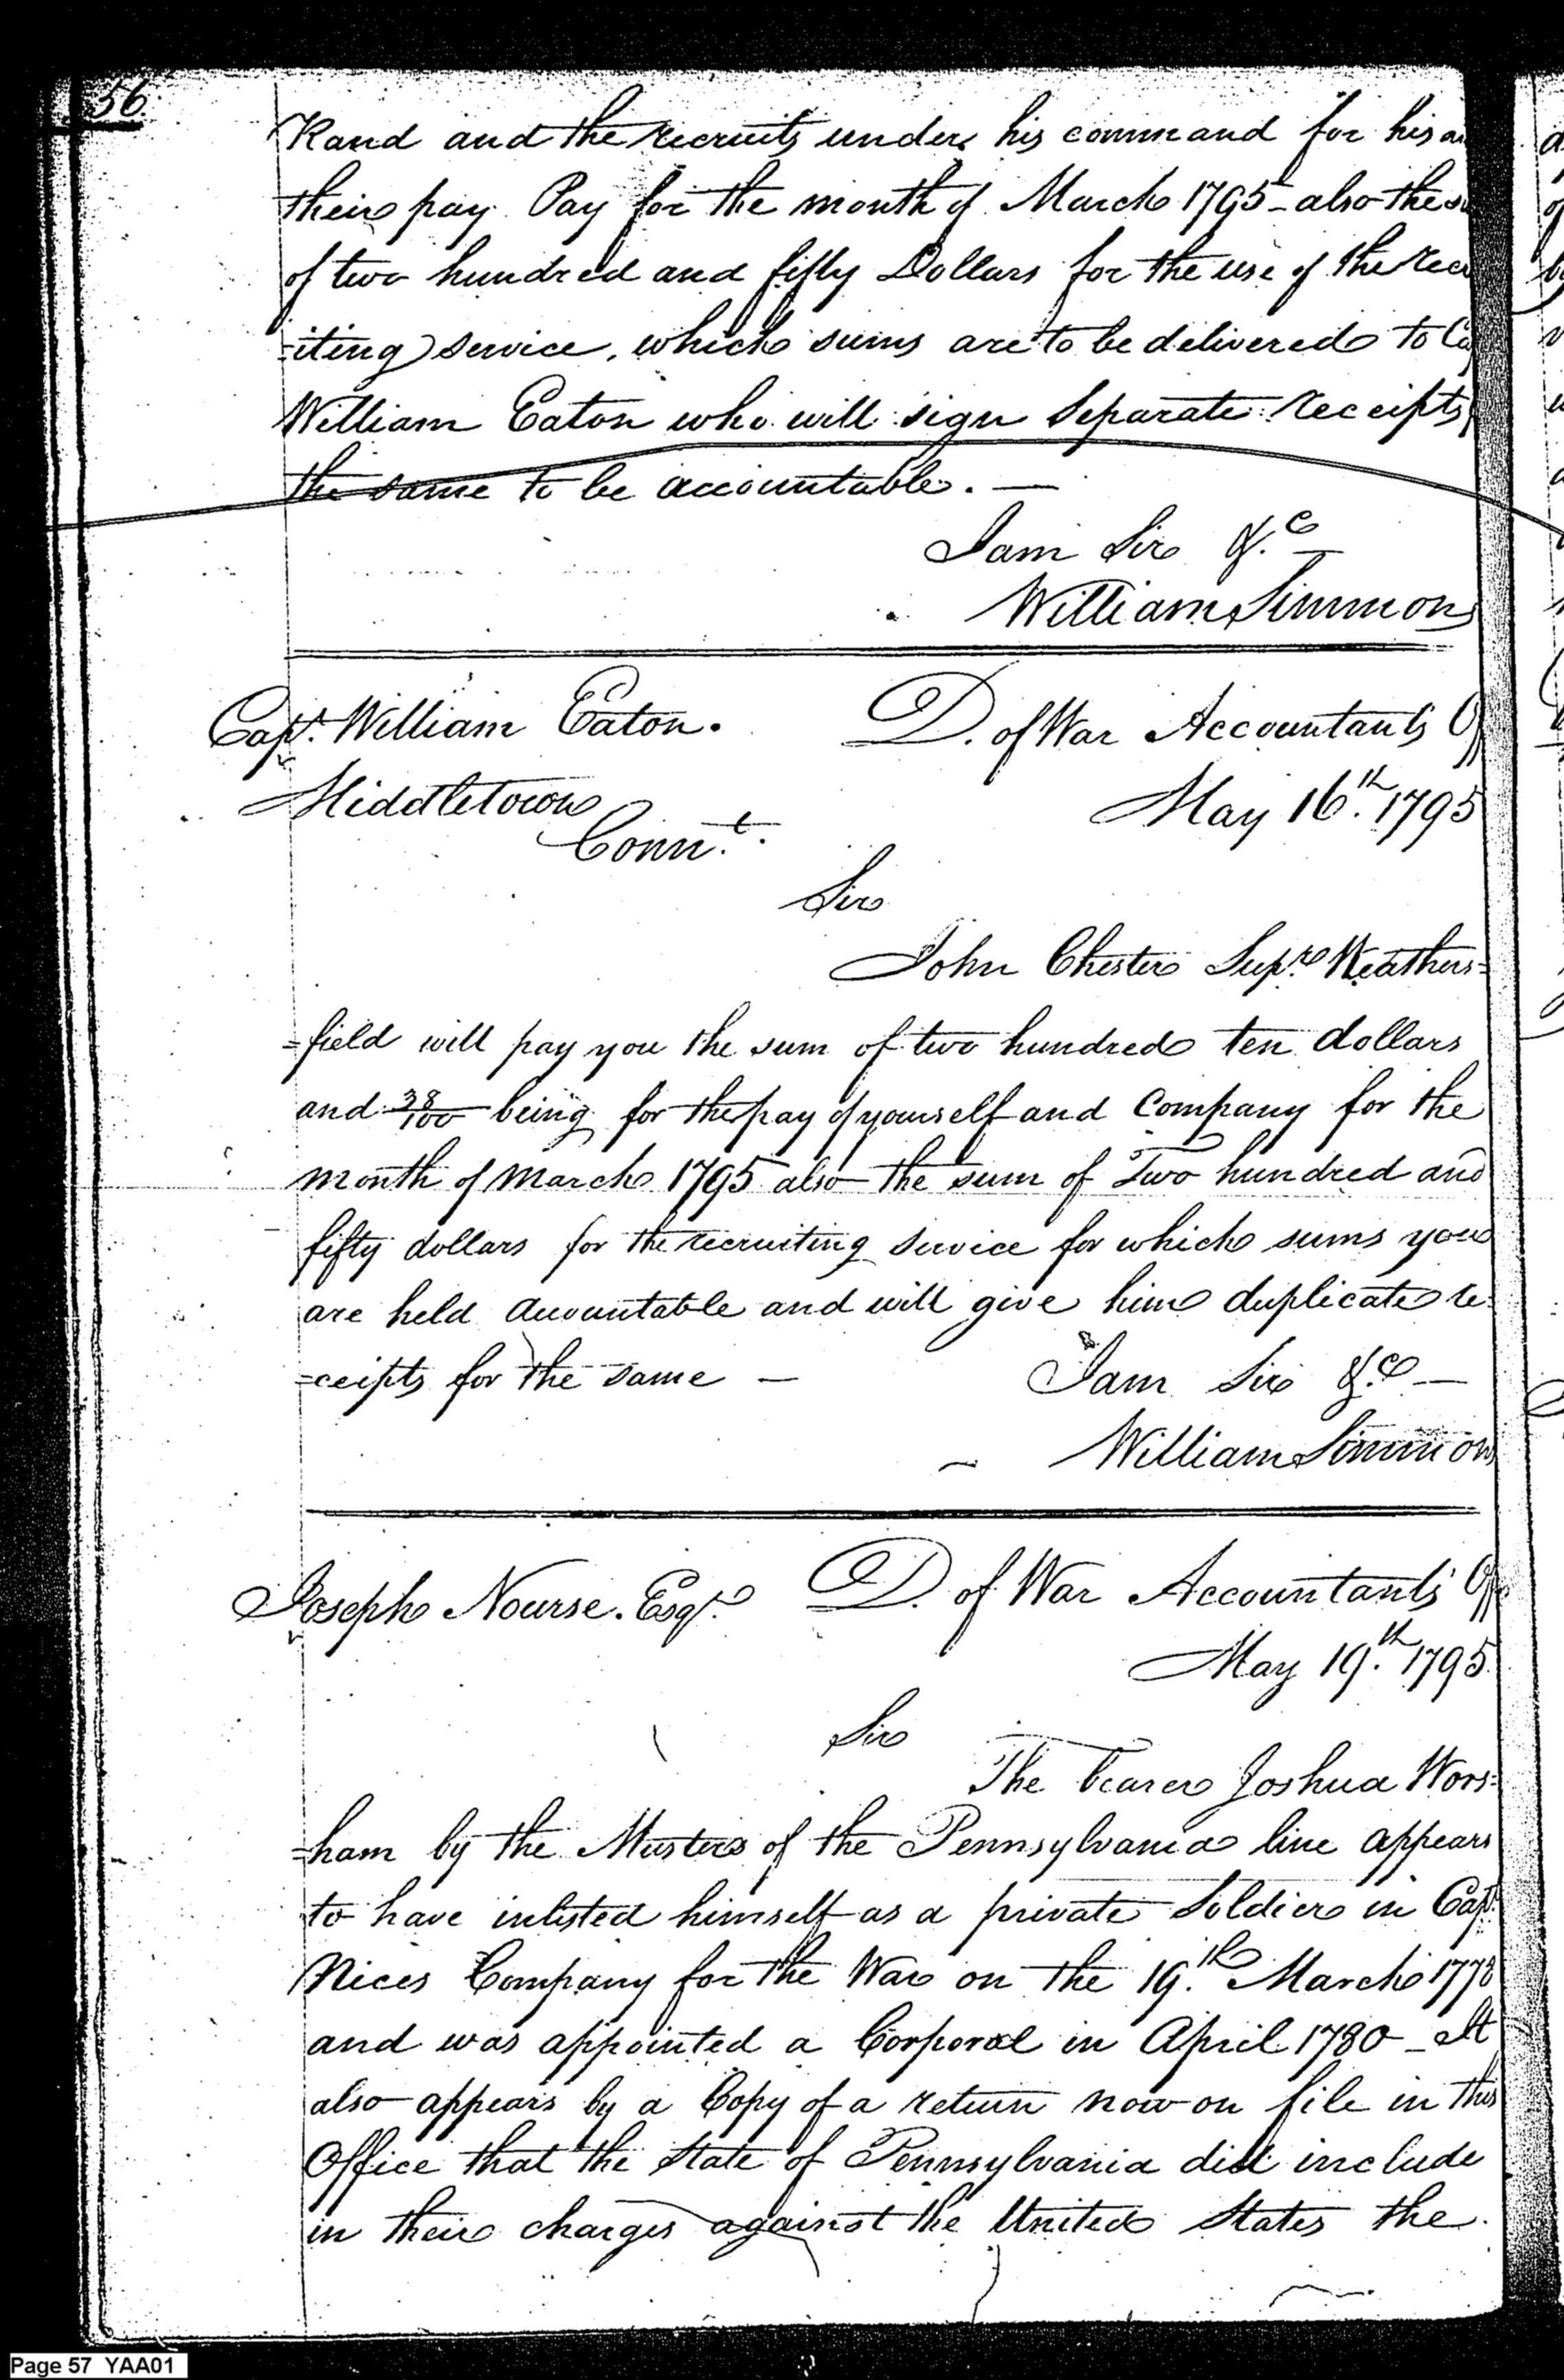 56
Rand and the recruits under his command for his a
their pay Pay for the month of March 1795 - also the
of two hundred and fifty Dollars for the use of the rec
-iting service, which sums are to be delivered to
William Eaton who will sign Separate receipts
the same to be accountable. —
I am Sir &.c —
William Simmons
Capt. William Eaton. D. of War Accountants
Middletown May 16th. 1795
Conn.t.
Sir
John Chester Supr. Weathers=
=field will pay you the sum of two hundred ten dollars
and 38/100 being for the pay of yourself and Company for the
month of March 1795 also the sum of Two hundred and
fifty dollars for the recruiting service for which sums you
are held accountable and will give him duplicate re
=ceipts for the same —
I am Sir &.c —
William Simmons
Joseph Nourse. Esqr. D. of War Accountants
May 19.th 1795
Sir
The bearer Joshua Wors=
=ham by the Musters of the Pennsylvania line appears
to have inlisted himself as a private Soldier in Capt.
Nices Company for the War on the 19.th March 1778
and was appointed a Corporal in April 1780 - It
also appears by a Copy of a return now on file in this
Office that the State of Pennsylvania did include
in their charges against the United States the
Page 57 YAA01